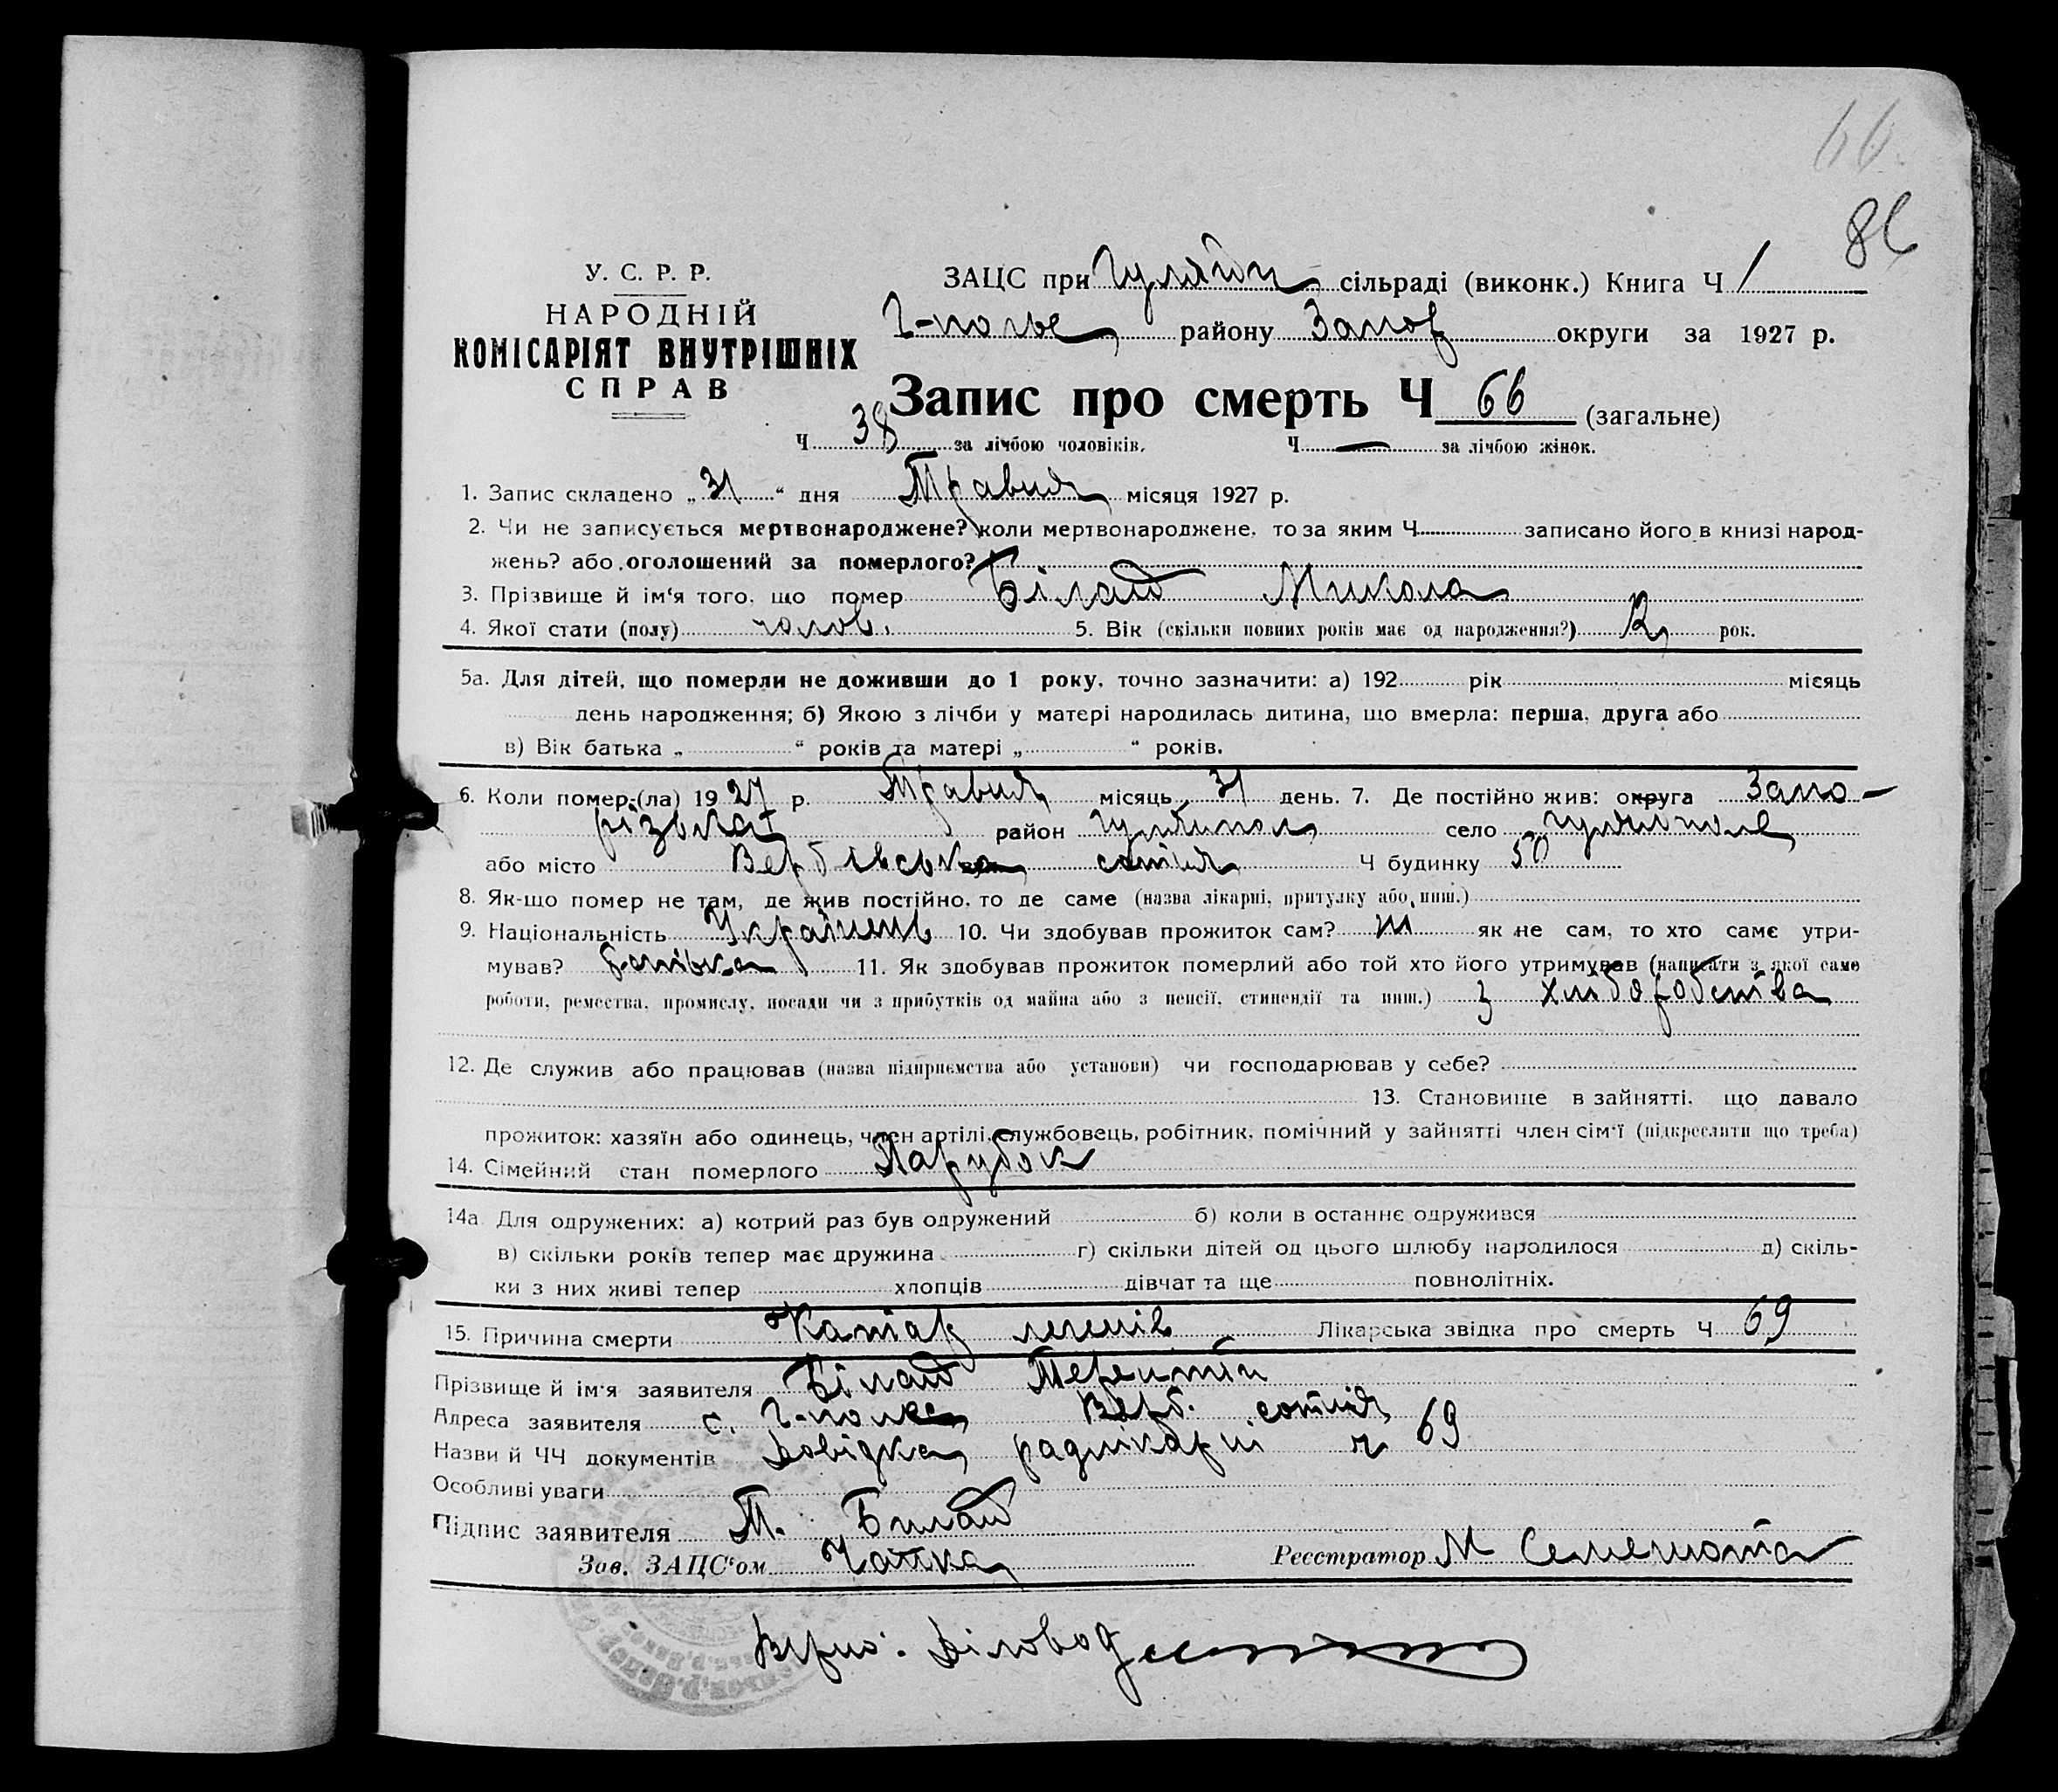 66
86
У. С. Р. Р.
НАРОДНІЙ
КОМІСАРІЯТ ВНУТРІШНІХ
СПРАВ
ЗАЦС при Гуляйп сільраді (виконк.) Книга Ч 1
Г-полье району Запор округи за 1927 р.
Запис про смерть Ч 66 (загальне)
Ч 38 за лічбою чоловіків. Ч — за лічбою жінок.
1. Запис складено „31“ дня Травня місяця 1927 р.
2. Чи не записується мертвонароджене? коли мертвонароджене, то за яким Ч записано його в книзі народ-
жень? або оголошений за померлого?
3. Прізвище й ім'я того, що помер Білаш Микола
4. Якої стати (полу) чолов. 5. Вік (скільки повних років має од народження?) рок.
5а. Для дітей, що померли не доживши до 1 року, точно зазначити: а) 192 рік місяць
день народження; б) Якою з лічби у матері народилась дитина, що вмерла: перша, друга або
в) Вік батька „ “ років та матері „ “ років.
6. Коли помер (ла) 1927 р. Травня місяць 31 день. 7. Де постійно жив: округа Запо-
різька район Гуляйпол село Гуляйполе
або місто Вербівська сотня Ч будинку 50
8. Як-що помер не там, де жив постійно, то де саме (назва лікарні, притулку або инш.)
9. Національність Українець 10. Чи здобував прожиток сам? ні як не сам, то хто саме утри-
мував? батько 11. Як здобував прожиток померлий або той хто його утримував (написати з якої саме
роботи, ремества, промислу, посади чи з прибутків од майна або з пенсії, стипендії та инш.) з хліборобства
12. Де служив або працював (назва підприємства або установи) чи господарював у себе?
13. Становище в зайнятті, що давало
прожиток: хазяїн або одинець, член артілі, службовець, робітник, помічний у зайнятті член сім'ї (підкреслити що треба)
14. Сімейний стан померлого Парубок
14а Для одружених: а) котрий раз був одружений б) коли в останнє одружився
в) скільки років тепер має дружина г) скільки дітей од цього шлюбу народилося д) скіль-
ки з них живі тепер хлопців дівчат та ще повнолітніх.
15. Причина смерти Катар легенів Лікарська звідка про смерть Ч 69
Прізвище й ім'я заявителя Білаш Терентій
Адреса заявителя с. Г-поле Верб. сотня
Назви й ЧЧ документів Довідка радлікарні ч 69
Особливі уваги
Підпис заявителя Т. Билаш
Зав. ЗАЦС'ом Реєстратор М
Вірно: Діловод